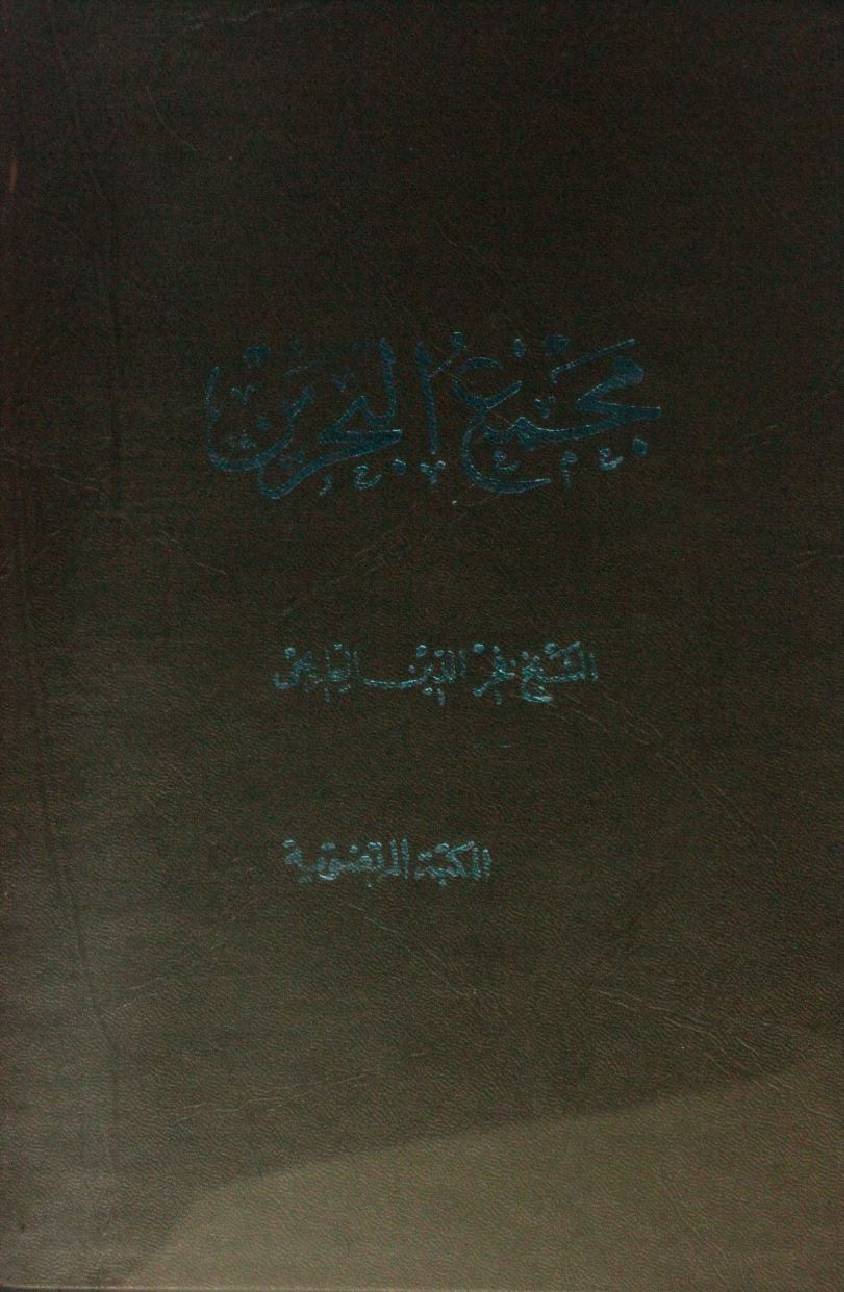 مجمع البحرين
الشيخ فخر الدين الطريحي
المكتبة المرتضوية